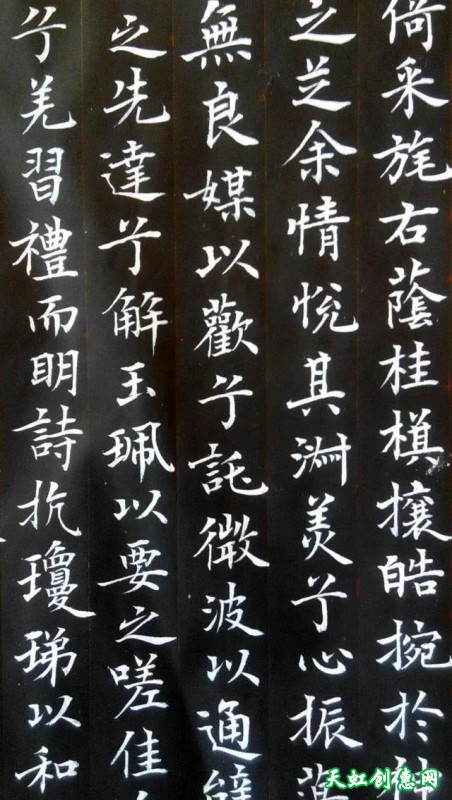 倚采旄右蔭桂棋攘皓捥於
之芝余情悅其淑美兮心振蕩
無良媒以歡兮託微波以通
之先達兮解玉珮以要之嗟佳
兮羌習禮而明詩抗瓊珶以和
天虹创德网